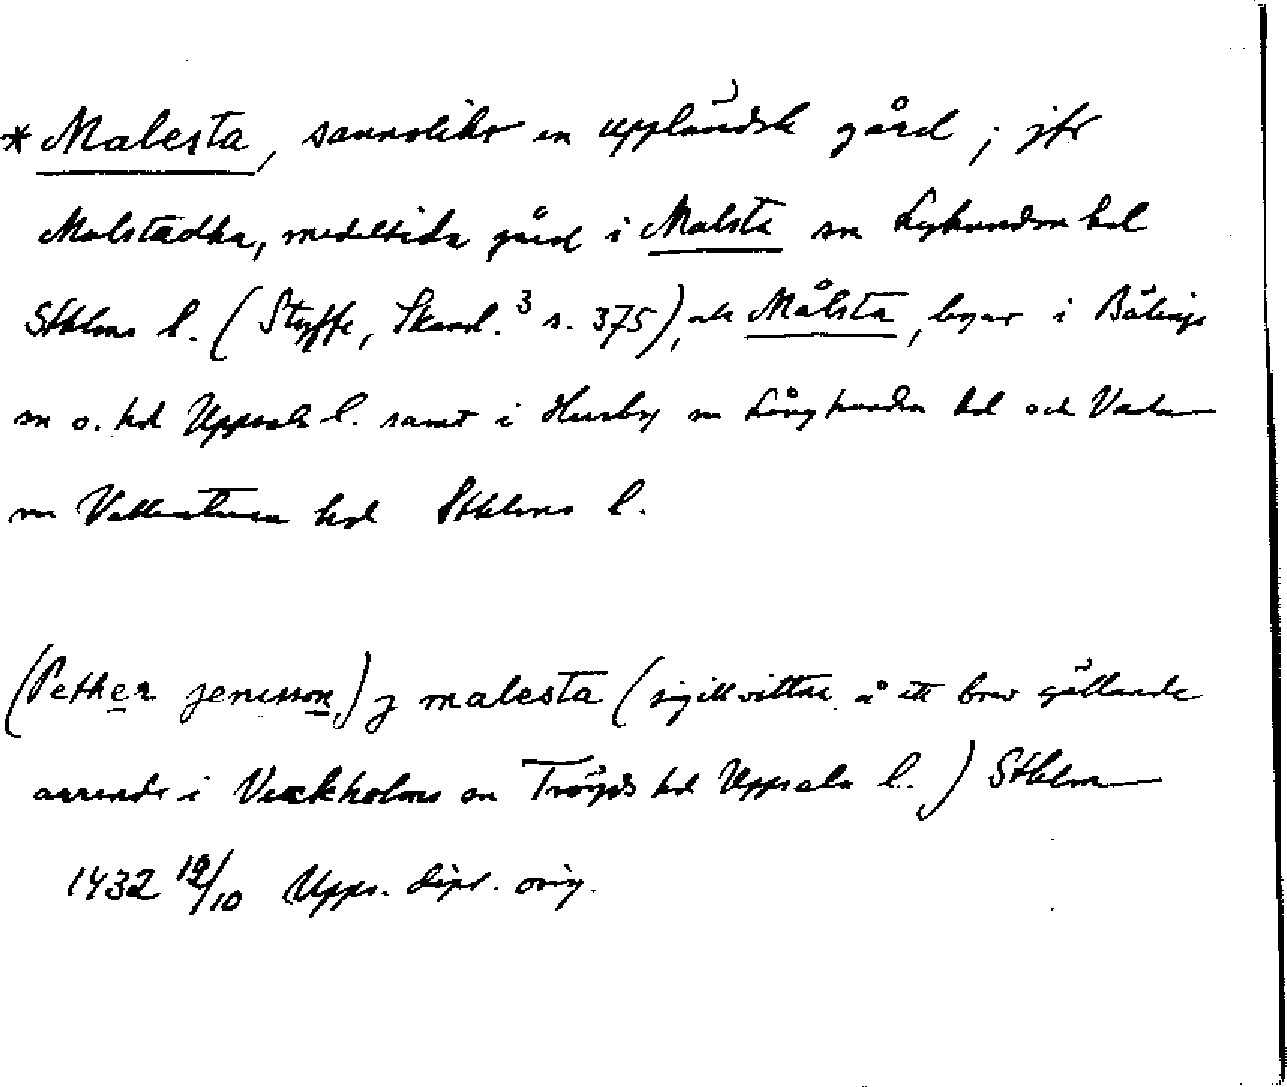 * Malesta, sannolikt en uppländsk gård ; jfr
Malstadha, medeltida gård i Malsta sn Lyhundra hd
Sthlms l. (Styffe, Skand.³ s. 375), och Målsta, byar i Bälinge
sn o. hd Uppsala l. samt i Husby sn Långhundra hd och Vada
sn Vallentuna hd Sthlms l.
(Pether jenisson) j malesta (sigillvittne å ett brev gällande
arrende i Veckholms sn Trögds hd Uppsala l.) Sthlm
1432 12/10 Upps. dipl. orig.